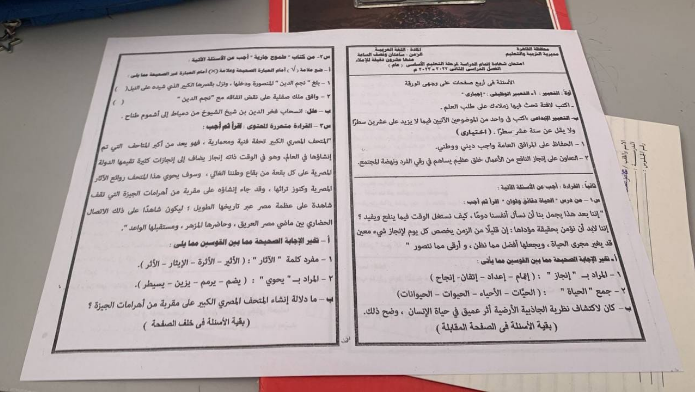 محافظة القاهرة
مديرية التربية والتعليم
لغة: اللغة العربية
الزمن: ساعتان ونصف الساعة
منها عشرون دقيقة للإملاء
امتحان شهادة إتمام الدراسة لمرحلة التعليم الأساسى ( عام )
الفصل الدراسى الثانى ٢٠٢٢ - ٢٠٢٣ م
الأسئلة فى أربع صفحات على وجهى الورقة
أولًا: التعبير أ- التعبير الوظيفى: - إجبارى -
- اكتب لافتة تحث فيها زملاءك على طلب العلم.
ب- التعبير الإبداعى: اكتب فى واحد من الموضوعين الآتيين فيما لا يزيد على عشرين سطرًا
ولا يقل عن ستة عشر سطرًا. ( اختيارى )
١- الحفاظ على المرافق العامة واجب دينى ووطنى.
٢- التعاون على إنجاز النافع من الأعمال خلق عظيم يساهم فى رقى الفرد ونهضة المجتمع.
ثانيًا: القراءة : أجب عن الأسئلة الآتية :
س١- من درس "الحياة دقائق وثوان" اقرأ ثم أجب :
"إننا بعد هذا يجمل بنا أن نسأل أنفسنا دومًا، كيف نستغل الوقت فيما ينفع ويفيد ؟
إننا لابد أن نؤمن بحقيقة مؤداها : إن قليلًا من الزمن يخصص كل يوم لإنجاز شىء معين
قد يغير مجرى الحياة ، ويجعلها أفضل مما نظن ، و أرقى مما نتصور "
أ- تخير الإجابة الصحيحة مما بين القوسين مما يلى:
١- المراد بـ " إنجاز " : ( إتمام - إعداد - إتقان - إنجاح )
٢- جمع " الحياة " : ( الحيّات - الأحياء - الحيوات - الحيوانات )
ب- كان لاكتشاف نظرية الجاذبية الأرضية أثر عميق فى حياة الإنسان ، وضح ذلك.
( بقية الأسئلة فى الصفحة المقابلة )
س٢- من كتاب " طموح جارية " أجب عن الأسئلة الآتية :
أ- ضع علامة ( √ ) أمام العبارة الصحيحة وعلامة (×) أمام العبارة غير الصحيحة مما يلى :
١- بلغ " نجم الدين " المنصورة ودخلها، ونزل بقصرها الكبير الذى شيده على النيل( )
٢- وافق ملك صقلية على نقض اتفاقه مع "نجم الدين" ( )
ب- علل: انسحاب فخر الدين بن شيخ الشيوخ من دمياط إلى أشموم طناح.
س٣- القراءة متحررة المحتوى: اقرأ ثم أجب :
"المتحف المصرى الكبير تحفة فنية ومعمارية ، فهو يعد من أكبر المتاحف التى تم
إنشاؤها فى العالم، وهو فى الوقت ذاته إنجاز يضاف إلى إنجازات كثيرة تقيمها الدولة
المصرية على كل بقعة من بقاع وطننا الغالى ، وسوف يحوى هذا المتحف روائع الآثار
المصرية وكنوز تراثها ، وقد جاء إنشاؤه على مقربة من أهرامات الجيزة التى تقف
شاهدة على عظمة مصر عبر تاريخها الطويل ؛ ليكون شاهدًا على ذلك الاتصال
الحضارى بين ماضى مصر العريق ، وحاضرها المزهر ، ومستقبلها الواعد ".
أ - تخير الإجابة الصحيحة مما بين القوسين مما يلى :
١- مفرد كلمة " الآثار " : ( الأثير - الأثرة - الإيثار - الأثر ).
٢- المراد بـ " يحوى " : ( يضم - يرمم - يزين - يسيطر ).
ب- ما دلالة إنشاء المتحف المصرى الكبير على مقربة من أهرامات الجيزة ؟
( بقية الأسئلة فى خلف الصفحة )